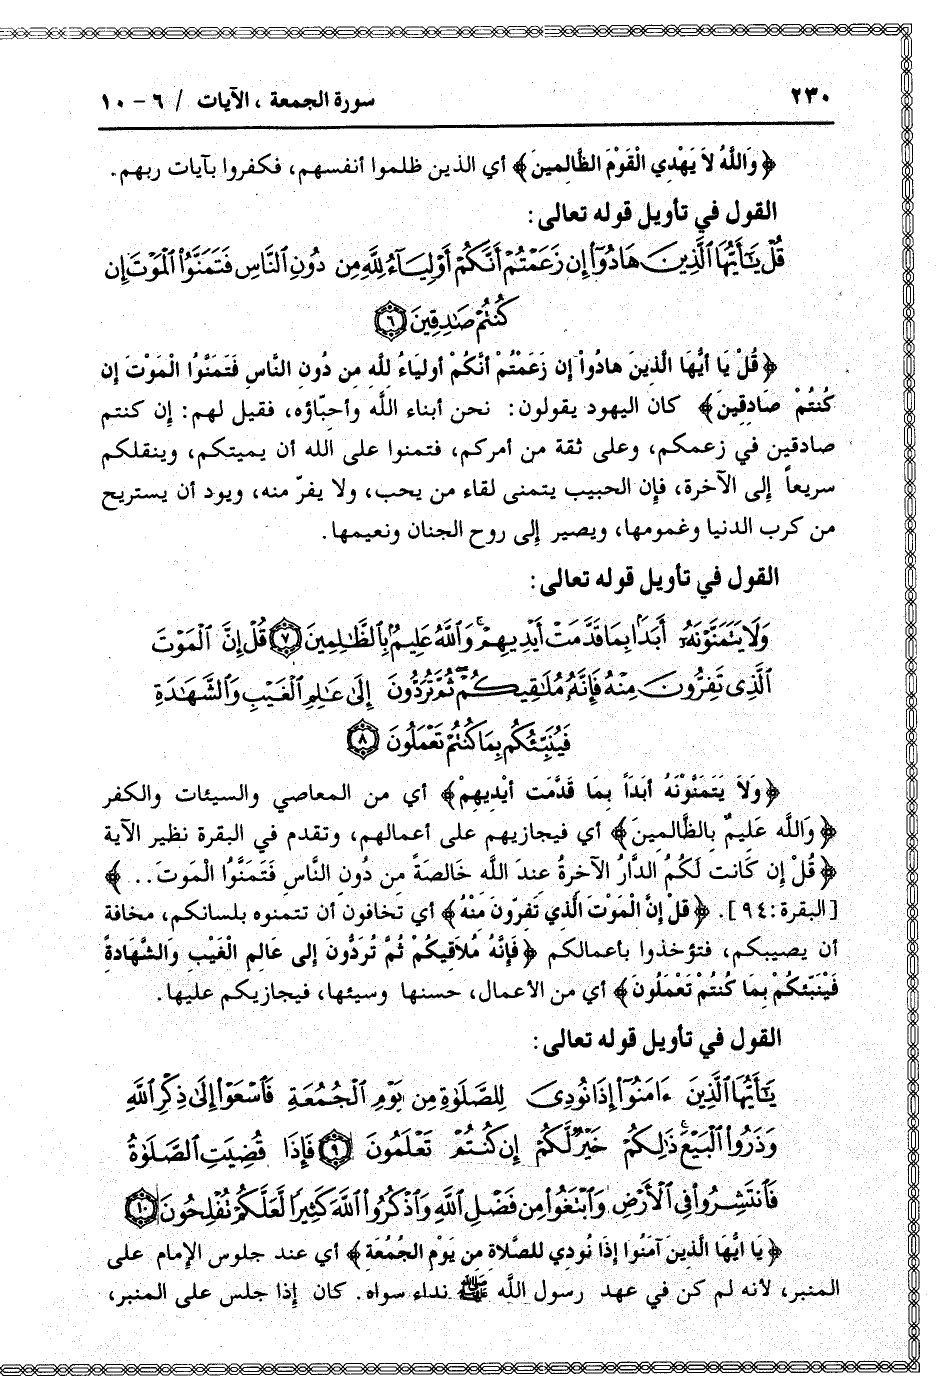 ٢٣٠ سورة الجمعة ، الآيات / ٦ - ١٠
﴿ وَاللَّهُ لاَ يَهْدِي الْقَوْمَ الظَّالِمِينَ ﴾ أي الذين ظلموا أنفسهم، فكفروا بآيات ربهم.
القول في تأويل قوله تعالى:
قُلْ يَٰٓأَيُّهَا ٱلَّذِينَ هَادُوٓا۟ إِن زَعَمْتُمْ أَنَّكُمْ أَوْلِيَآءُ لِلَّهِ مِن دُونِ ٱلنَّاسِ فَتَمَنَّوُا۟ ٱلْمَوْتَ إِن
كُنتُمْ صَٰدِقِينَ ٦
﴿ قُلْ يَا أيُّهَا الَّذِينَ هادُواْ إن زَعَمْتُمْ أنَّكُمْ أولِيَاءُ للَّهِ مِن دُونِ النَّاسِ فَتَمَنَّوُا الْمَوْتَ إن
كُنتُمْ صَادِقِينَ ﴾ كان اليهود يقولون: نحن أبناء الله وأحبّاؤه، فقيل لهم: إن كنتم
صادقين في زعمكم، وعلى ثقة من أمركم، فتمنوا على الله أن يميتكم، وينقلكم
سريعاً إلى الآخرة، فإن الحبيب يتمنى لقاء من يحب، ولا يفرّ منه، ويود أن يستريح
من كرب الدنيا وغمومها، ويصير إلى روح الجنان ونعيمها.
القول في تأويل قوله تعالى:
وَلَا يَتَمَنَّوْنَهُۥٓ أَبَدًۢا بِمَا قَدَّمَتْ أَيْدِيهِمْ ۚ وَٱللَّهُ عَلِيمٌۢ بِٱلظَّٰلِمِينَ ٧ قُلْ إِنَّ ٱلْمَوْتَ
ٱلَّذِى تَفِرُّونَ مِنْهُ فَإِنَّهُۥ مُلَٰقِيكُمْ ۖ ثُمَّ تُرَدُّونَ إِلَىٰ عَٰلِمِ ٱلْغَيْبِ وَٱلشَّهَٰدَةِ
فَيُنَبِّئُكُم بِمَا كُنتُمْ تَعْمَلُونَ ٨
﴿ وَلاَ يَتَمَنَّوْنَهُ أبَداً بِمَا قَدَّمَت أيْدِيهِمْ ﴾ أي من المعاصي والسيئات والكفر
﴿ وَاللَّه عَلِيمٌ بِالظَّالِمِينَ ﴾ أي فيجازيهم على أعمالهم، وتقدم في البقرة نظير الآية
﴿ قُلْ إن كَانَت لَكُمُ الدَّارُ الآخِرةُ عندَ اللَّه خَالِصَةً من دُونِ النَّاسِ فَتَمَنَّوُا الْمَوتَ.. ﴾
[البقرة:٩٤]. ﴿ قلْ إنَّ الْمَوْتَ الَّذِي تَفِرّونَ مِنْهُ ﴾ أي تخافون أن تتمنوه بلسانكم، مخافة
أن يصيبكم، فتؤخذوا بأعمالكم ﴿ فَإنَّهُ مُلاَقِيكُمْ ثُمَّ تُرَدُّونَ إلى عَالِمِ الْغَيْبِ وَالشَّهادَةِ
فَيُنَبِّئكُمْ بِمَا كُنتُمْ تَعْمَلُونَ ﴾ أي من الأعمال، حسنها وسيئها، فيجازيكم عليها.
القول في تأويل قوله تعالى:
يَٰٓأَيُّهَا ٱلَّذِينَ ءَامَنُوٓا۟ إِذَا نُودِىَ لِلصَّلَوٰةِ مِن يَوْمِ ٱلْجُمُعَةِ فَٱسْعَوْا۟ إِلَىٰ ذِكْرِ ٱللَّهِ
وَذَرُوا۟ ٱلْبَيْعَ ۚ ذَٰلِكُمْ خَيْرٌ لَّكُمْ إِن كُنتُمْ تَعْلَمُونَ ٩ فَإِذَا قُضِيَتِ ٱلصَّلَوٰةُ
فَٱنتَشِرُوا۟ فِى ٱلْأَرْضِ وَٱبْتَغُوا۟ مِن فَضْلِ ٱللَّهِ وَٱذْكُرُوا۟ ٱللَّهَ كَثِيرًا لَّعَلَّكُمْ تُفْلِحُونَ ١٠
﴿ يَا ايُّهَا الَّذِينَ آمَنُوا إذَا نُودِي للصَّلاَة مِن يَوْمِ الجُمُعَة ﴾ أي عند جلوس الإمام على
المنبر، لأنه لم كن في عهد رسول الله ﷺ نداء سواه. كان إذا جلس على المنبر،